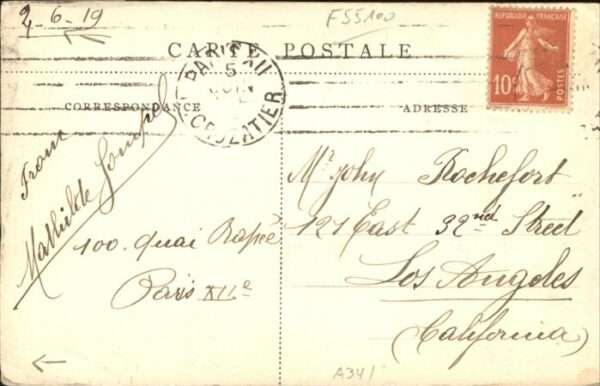 4-6-19
F55100
CARTE POSTALE
REPUBLIQUE FRANÇAISE
10c
POSTES
PARIS
5
JUIN
CROZATIER
CORRESPONDANCE
ADRESSE
From
Mathilde
100. Quai Rapée
Paris XIIe
Mr John Rochefort
121 East 32nd Street
Los Angeles
(California)
A341